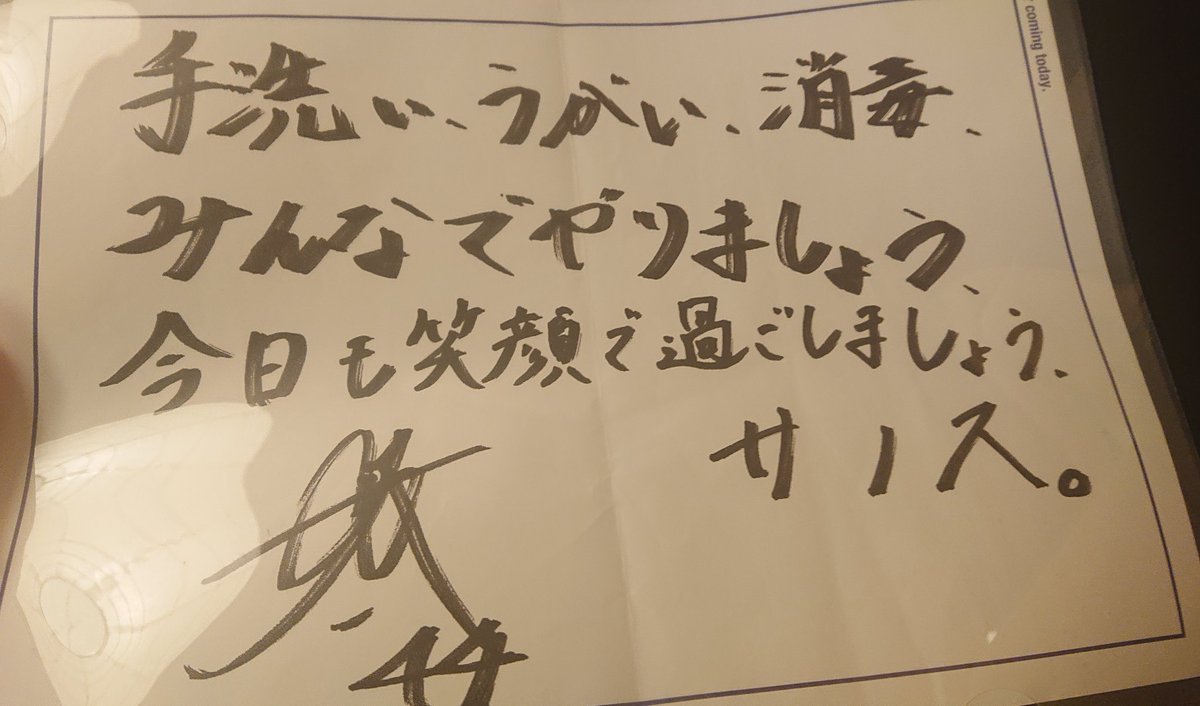 手洗い、うがい、消毒、
みんなでやりましょう、
今日も笑顔で過ごしましょう、
サノス。
44
coming today.